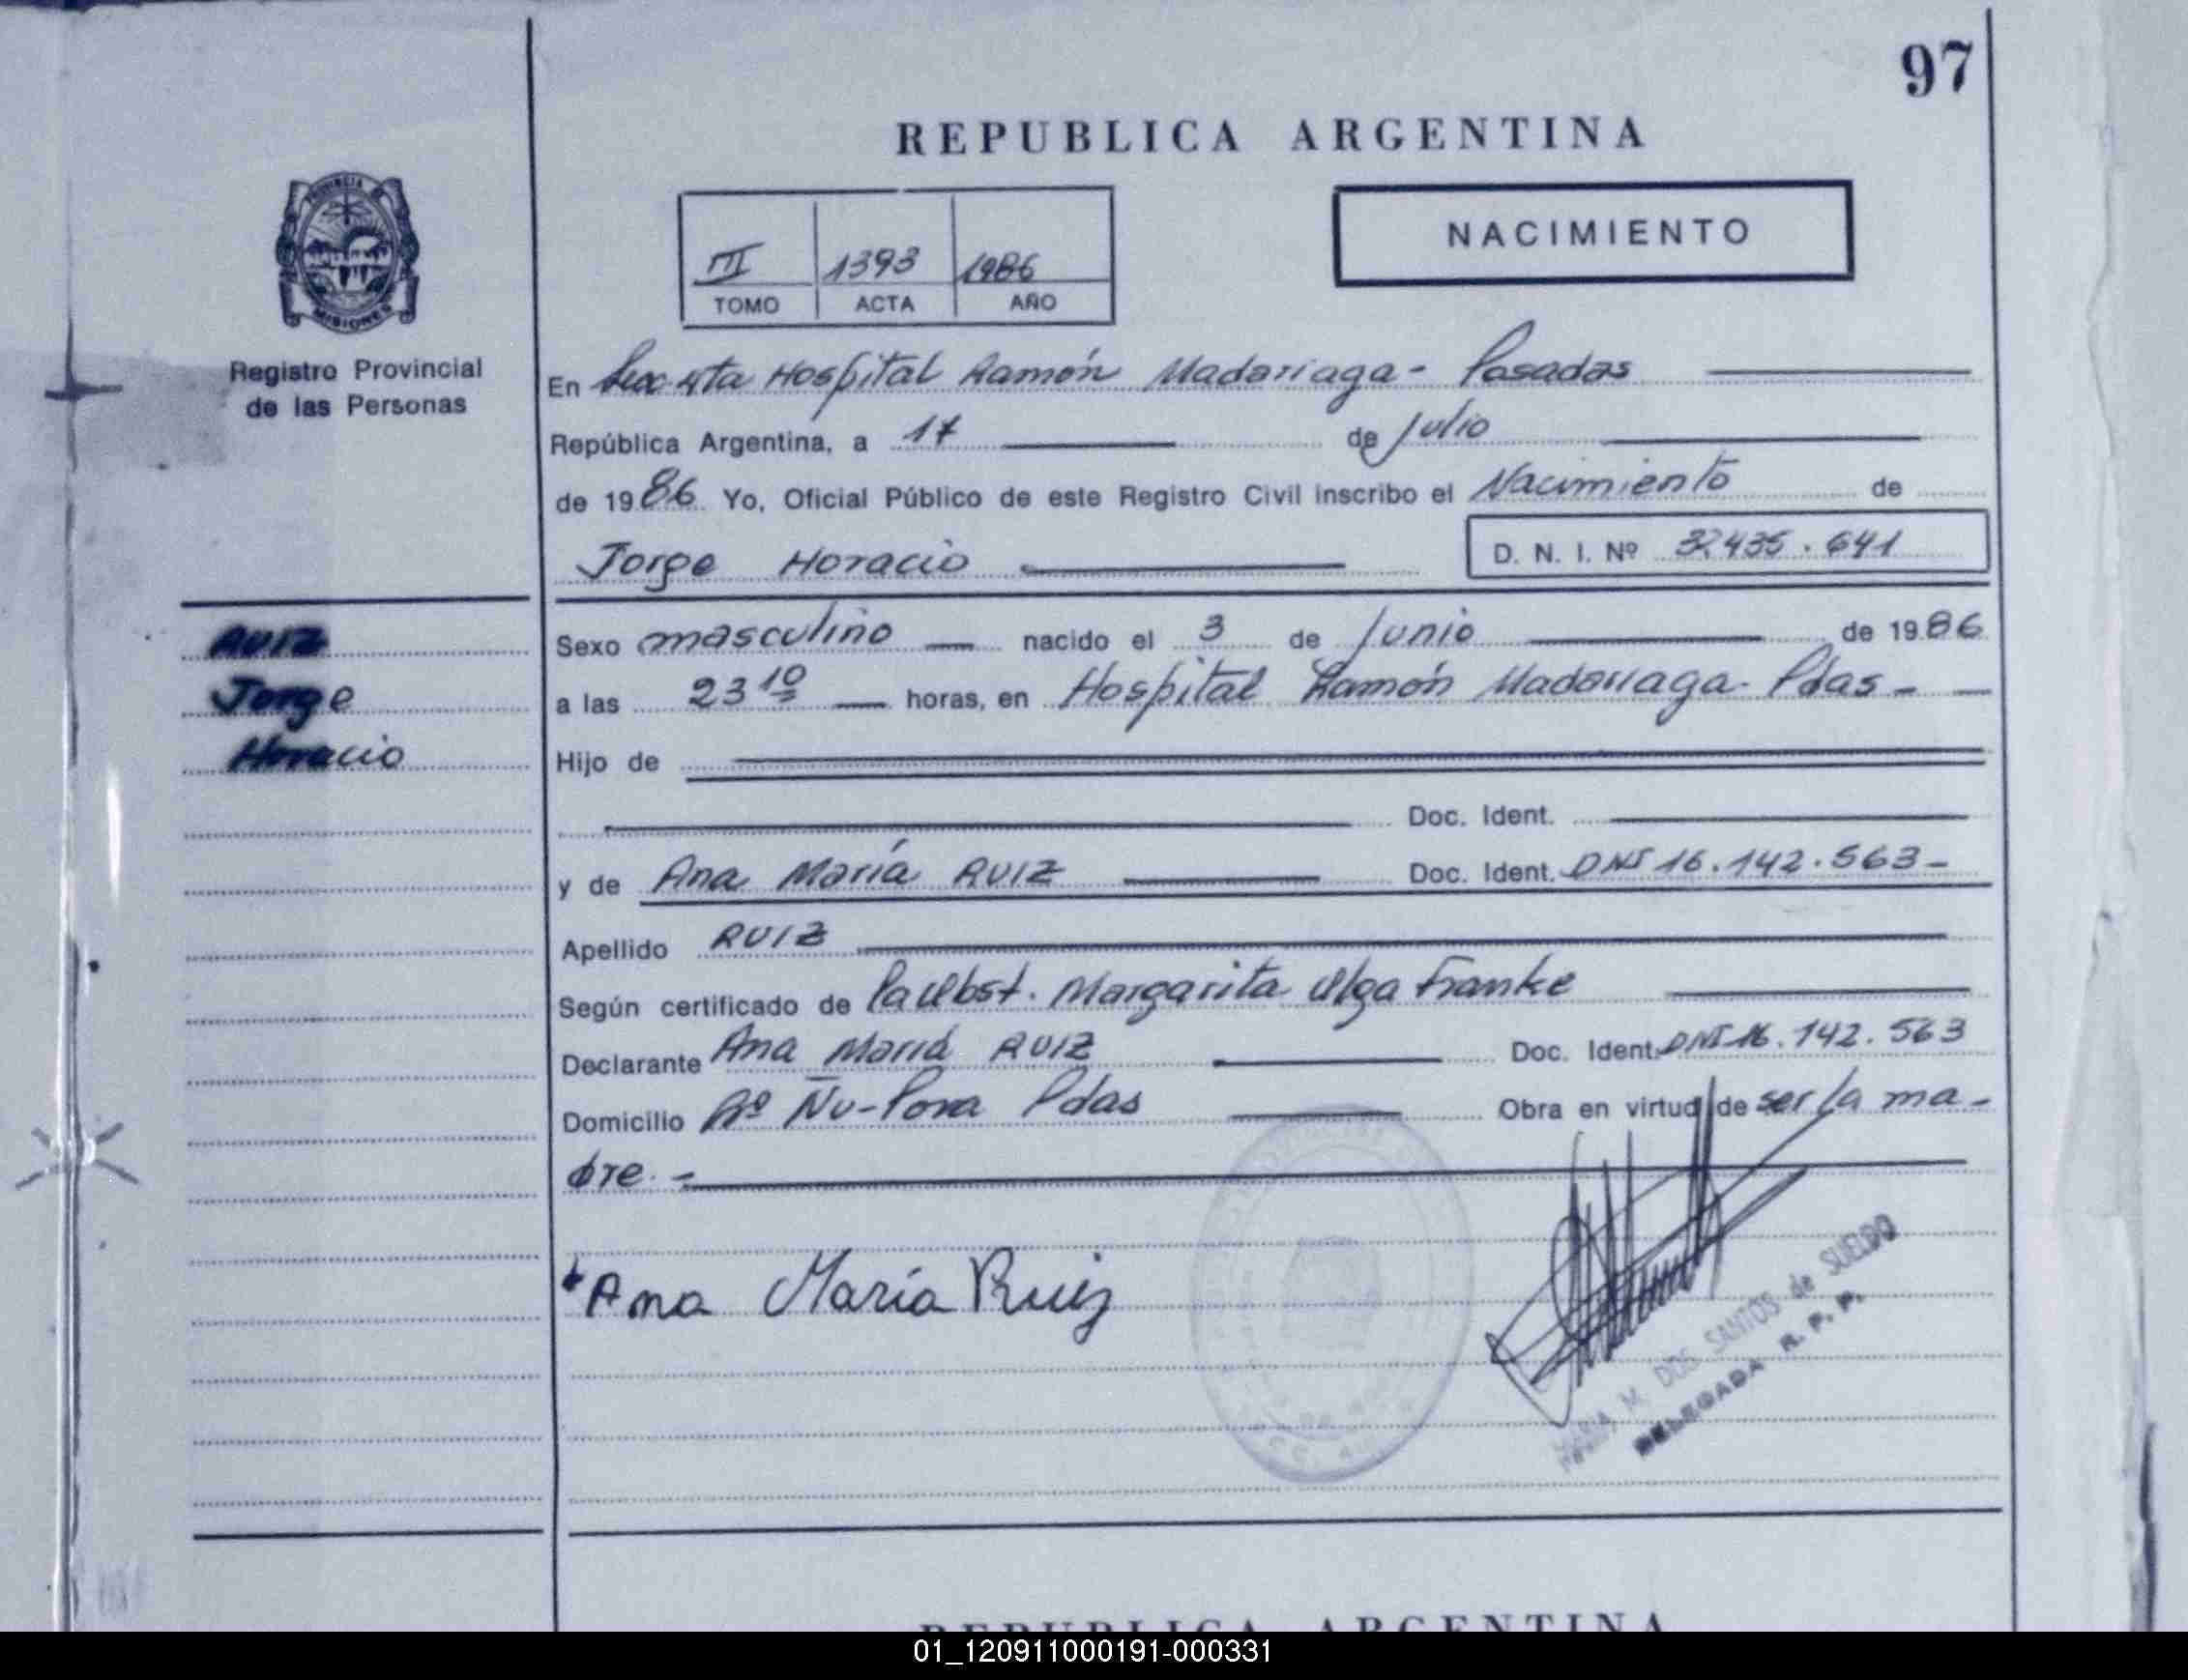 97
REPUBLICA ARGENTINA
PROVINCIA DE
MISIONES
Registro Provincial
de las Personas
III 1393 1986
TOMO ACTA AÑO
NACIMIENTO
En Hospital Ramón Madariaga - Posadas
República Argentina, a 17 de Julio
de 1986 Yo, Oficial Público de este Registro Civil inscribo el Nacimiento de
Jorge Horacio D. N. I. Nº 32.435.641
RUIZ
Jorge
Horacio
Sexo masculino nacido el 3 de Junio de 1986
a las 23 10 horas, en Hospital Ramón Madariaga - Pdas -
Hijo de
Doc. Ident.
y de Ana María RUIZ Doc. Ident. DNI 16.142.563-
Apellido RUIZ
Según certificado de Margarita Olga Franke
Declarante Ana María RUIZ Doc. Ident. DNI 16.142.563
Domicilio Ñu-Pora Pdas Obra en virtud de ser la ma-
dre.-
Ana María Ruiz
M. DOS SANTOS de SUELDO
DELEGADA R. P. P.
REPUBLICA ARGENTINA
01_120911000191-000331